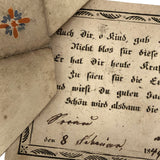 Auch Dir, o Kind, gab
Nicht bloß für diese
Er hat Dir heute Kraft
Zu säen für die E
und wirst Du guten Sa
Schön wird alsdann die
den 8